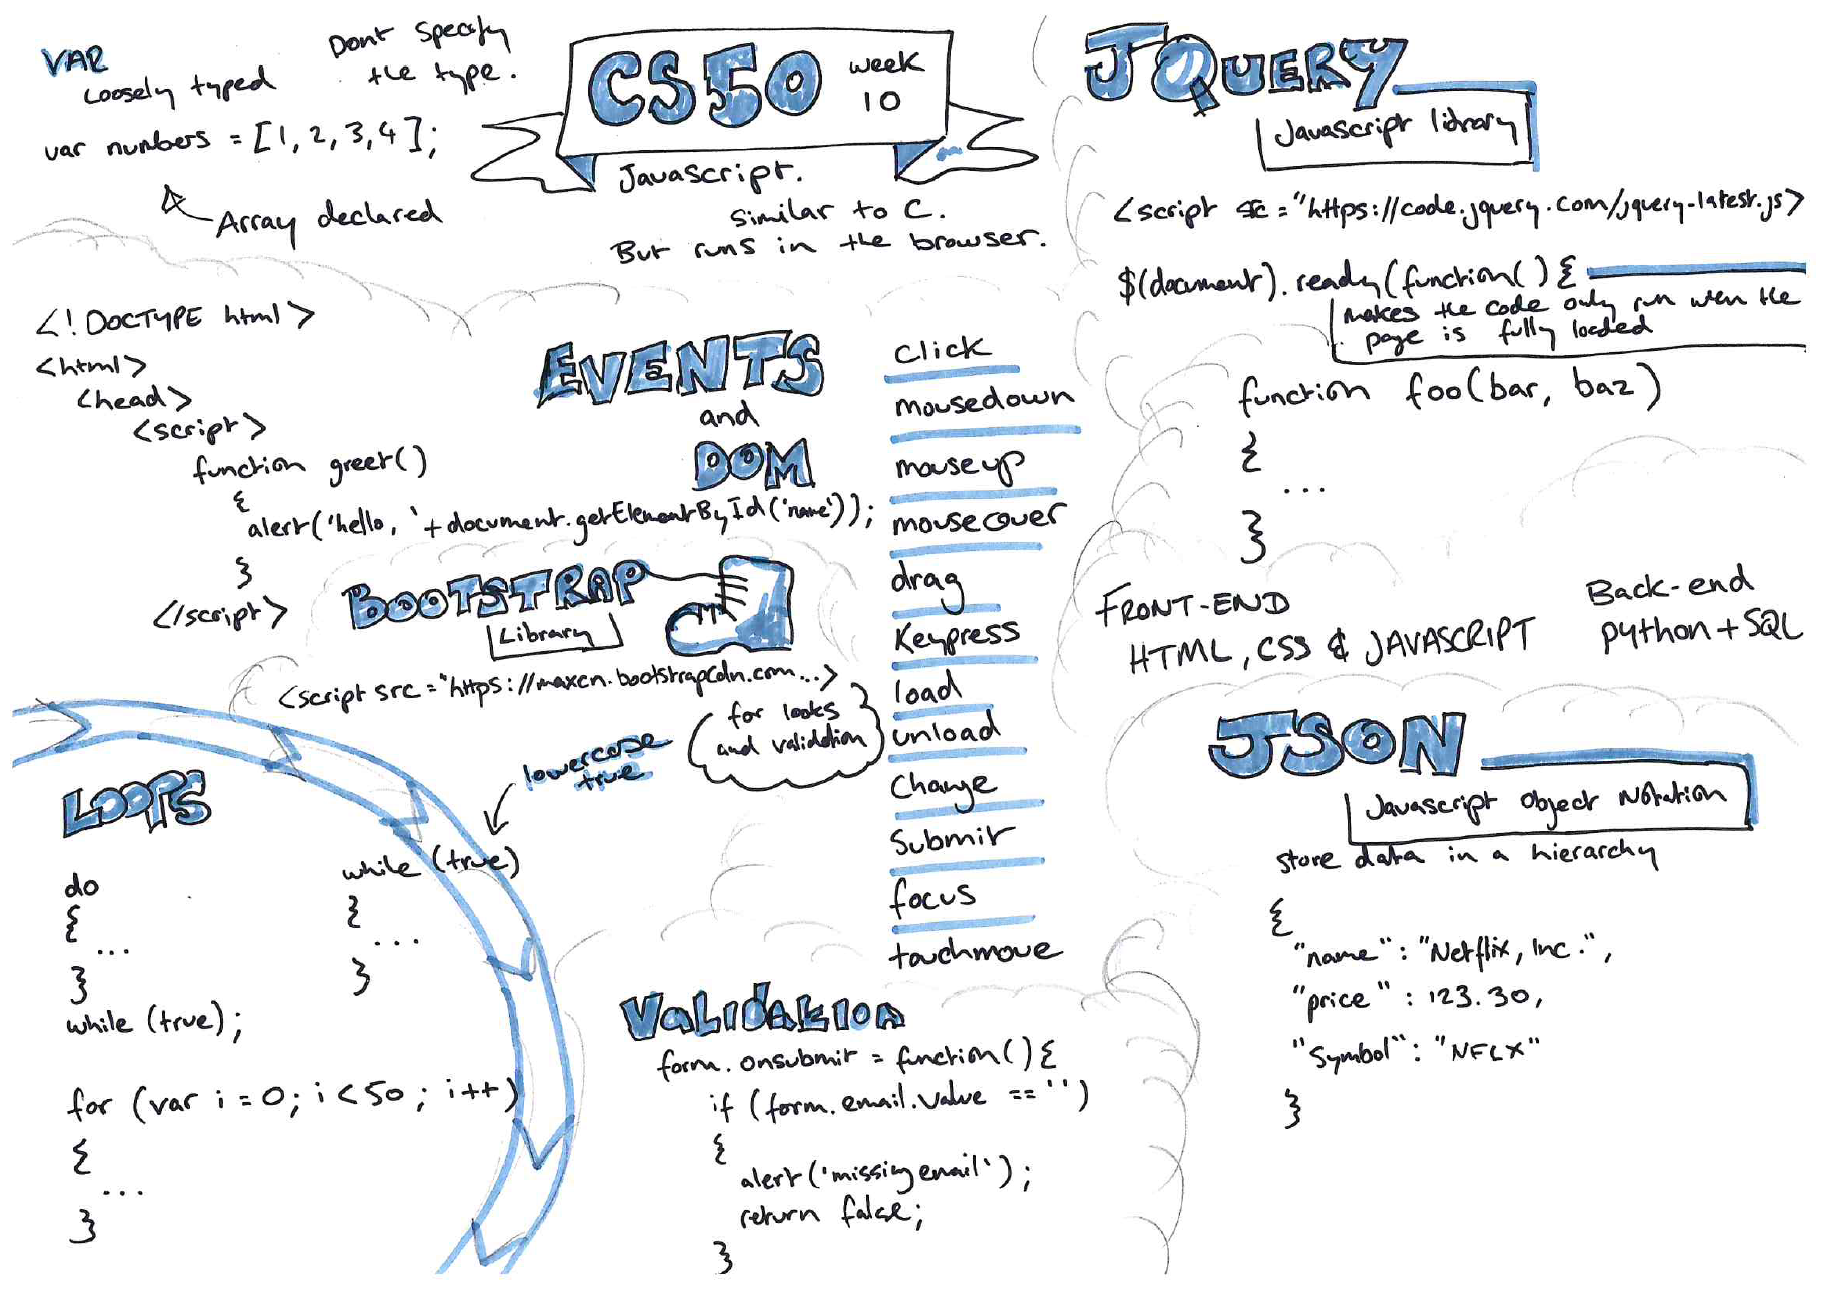 VAR
Loosely typed
Dont specify
the type.
var numbers = [1, 2, 3, 4];
Array declared
CS50 week
10
Javascript.
Similar to C.
But runs in the browser.
JQUERY
Javascript library
<script src="https://code.jquery.com/jquery-latest.js>
$(document).ready(function() {
makes the code only run wen the
page is fully loaded
function foo(bar, baz)
{
...
}
<!DOCTYPE html>
<html>
<head>
<script>
function greet()
{
alert('hello, '+document.getElementById('name'));
}
</script>
EVENTS
and
DOM
click
mousedown
mouseup
mouseover
drag
Keypress
load
unload
Change
Submit
focus
touchmove
BOOTSTRAP
Library
<script src="https://maxcn.bootstrapcdn.com...>
for looks
and validation
FRONT-END
HTML, CSS & JAVASCRIPT
Back-end
python+SQL
LOOPS
lowercase
true
do
{
...
}
while (true);
while (true)
{
...
}
for (var i = 0; i < 50; i++)
{
...
}
VALIDATION
form.onsubmit = function() {
if (form.email.value == '')
{
alert('missing email');
return false;
}
JSON
Javascript Object Notation
store data in a hierarchy
{
"name": "Netflix, Inc.",
"price": 123.30,
"Symbol": "NFLX"
}